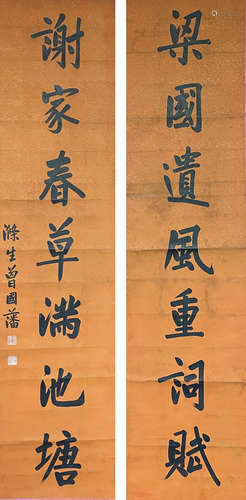 梁國遺風重詞賦
謝家春草满池塘
滌生曾國藩